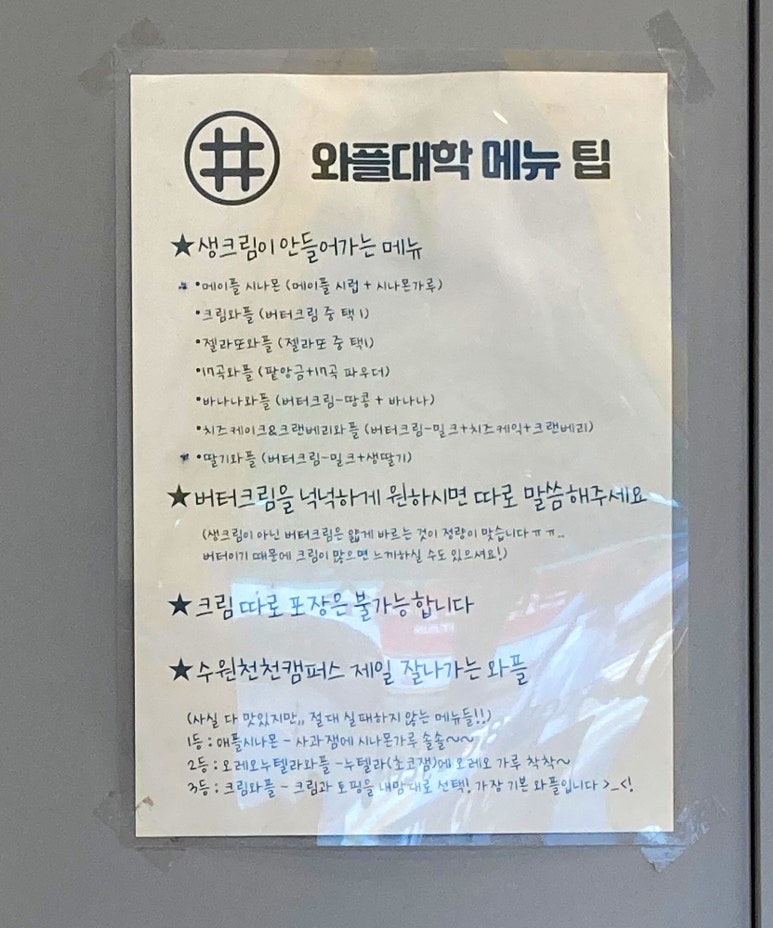 와플대학 메뉴 팁
★생크림이 안들어가는 메뉴
•메이플 시나몬 (메이플 시럽 + 시나몬가루)
•크림와플 (버터크림 중 택1)
•젤라또와플 (젤라또 중 택1)
•17곡와플 (팥앙금+17곡 파우더)
•바나나와플 (버터크림-땅콩 + 바나나)
•치즈케이크&크랜베리와플 (버터크림-밀크+치즈케익+크랜베리)
•딸기와플 (버터크림-밀크+생딸기)
★버터크림을 넉넉하게 원하시면 따로 말씀해주세요
(생크림이 아닌 버터크림은 얇게 바르는 것이 정량이 맞습니다ㅠㅠ..
버터이기 때문에 크림이 많으면 느끼하실 수도 있으셔요!)
★크림 따로 포장은 불가능합니다
★수원천천캠퍼스 제일 잘나가는 와플
(사실 다 맛있지만,, 절대 실패하지 않는 메뉴들!!)
1등 : 애플시나몬 - 사과잼에 시나몬가루 솔솔~~
2등 : 오레오누텔라와플 -누텔라(초코잼)에 오레오 가루 착착~
3등 : 크림와플 - 크림과 토핑을 내맘대로 선택! 가장 기본 와플입니다 >_<!